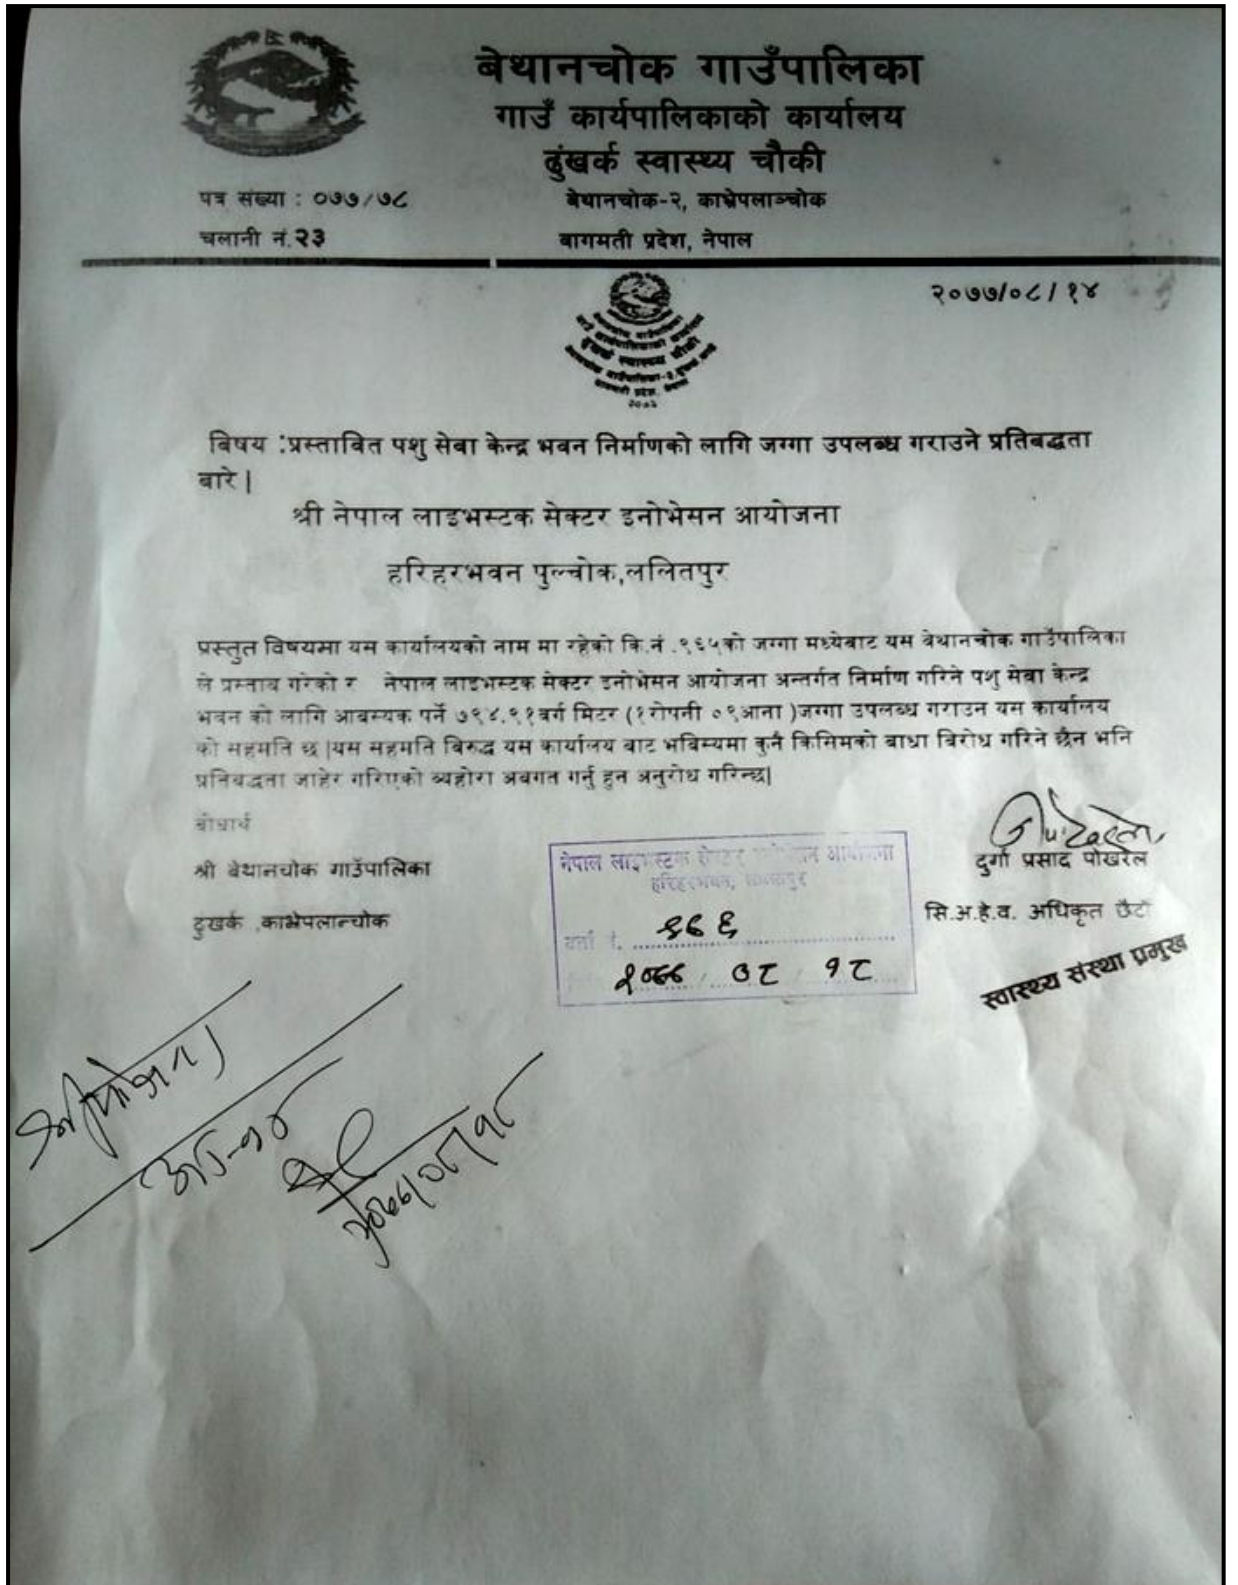 बेथानचोक गाउँपालिका
गाउँ कार्यपालिकाको कार्यालय
ढुंखर्क स्वास्थ्य चौकी
पत्र संख्या : ०७७/७८
बेथानचोक-२, काभ्रेपलाञ्चोक
चलानी नं.२३
बागमती प्रदेश, नेपाल
२०७७/०८/१४
बिषय :प्रस्तावित पशु सेवा केन्द्र भवन निर्माणको लागि जग्गा उपलब्ध गराउने प्रतिबद्धता
बारे |
श्री नेपाल लाइभस्टक सेक्टर इनोभेसन आयोजना
हरिहरभवन पुल्चोक,ललितपुर
प्रस्तुत विषयमा यस कार्यालयको नाम मा रहेको कि.नं .९६५को जग्गा मध्येबाट यस बेथानचोक गाउँपालिका
ले प्रस्ताब गरेको र नेपाल लाइभस्टक सेक्टर इनोभेसन आयोजना अन्तर्गत निर्माण गरिने पशु सेवा केन्द्र
भवन को लागि आबस्यक पर्ने ७९४.९१बर्ग मिटर (१रोपनी ०९आना )जग्गा उपलब्ध गराउन यस कार्यालय
को सहमति छ |यस सहमति बिरुद्ध यस कार्यालय बाट भबिस्यमा कुनै किसिमको बाधा बिरोध गरिने छैन भनि
प्रतिबद्धता जाहेर गरिएको ब्यहोरा अबगत गर्नु हुन अनुरोध गरिन्छ|
बोधार्थ
श्री बेथानचोक गाउँपालिका
ढुखर्क ,काभ्रेपलान्चोक
नेपाल लाइभस्टक सेक्टर इनोभेसन आयोजना
हरिहरभवन, ललितपुर
दर्ता नं.
२०७७ ०८ १८
दुर्गा प्रसाद पोखरेल
सि.अ.हे.व. अधिकृत छैटौ
स्वास्थ्य संस्था प्रमुख
२०७७/०८/१८